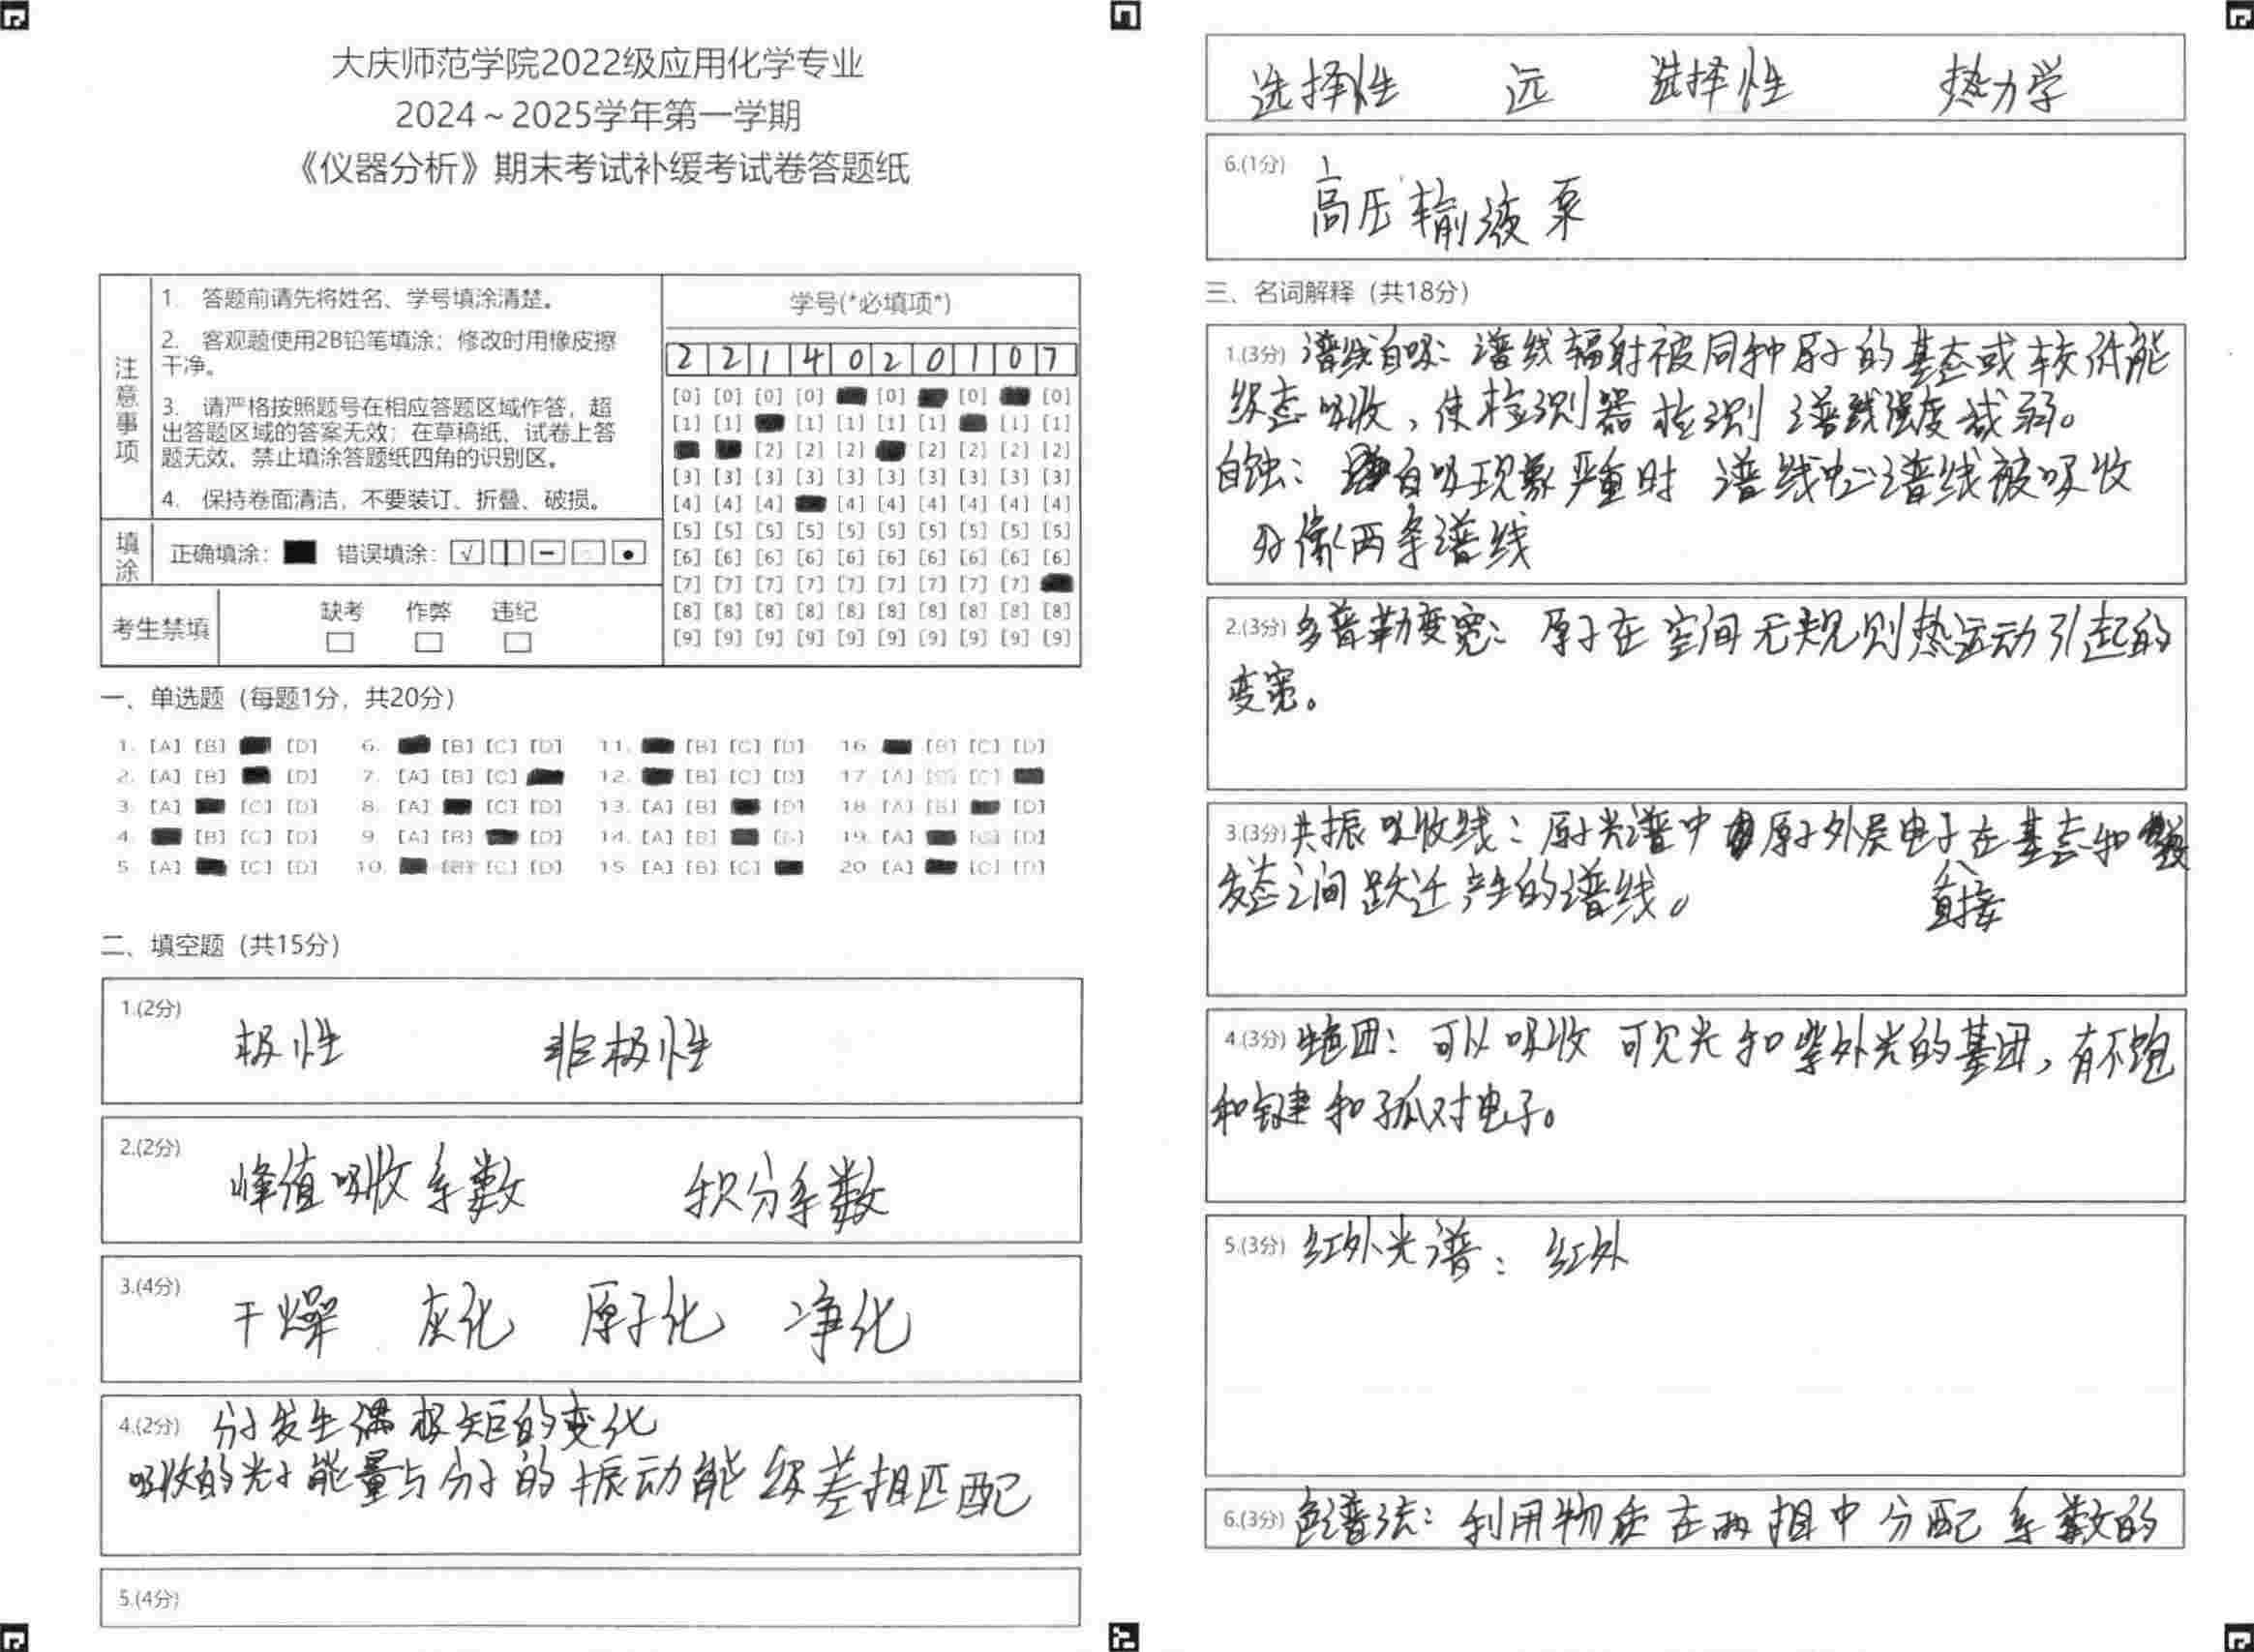 大庆师范学院2022级应用化学专业
2024～2025学年第一学期
《仪器分析》期末考试补缓考试卷答题纸
注意事项
1. 答题前请先将姓名、学号填涂清楚。
2. 客观题使用2B铅笔填涂；修改时用橡皮擦
干净。
3. 请严格按照题号在相应答题区域作答，超
出答题区域的答案无效；在草稿纸、试卷上答
题无效。禁止填涂答题纸四角的识别区。
4. 保持卷面清洁，不要装订、折叠、破损。
填涂
正确填涂： 错误填涂：
考生禁填
缺考 作弊 违纪
学号(*必填项*)
2 2 1 4 0 2 0 1 0 7
[0] [0] [0] [0] [0] [0] [0]
[1] [1] [1] [1] [1] [1] [1] [1]
[2] [2] [2] [2] [2] [2] [2]
[3] [3] [3] [3] [3] [3] [3] [3] [3] [3]
[4] [4] [4] [4] [4] [4] [4] [4] [4]
[5] [5] [5] [5] [5] [5] [5] [5] [5] [5]
[6] [6] [6] [6] [6] [6] [6] [6] [6] [6]
[7] [7] [7] [7] [7] [7] [7] [7] [7]
[8] [8] [8] [8] [8] [8] [8] [8] [8] [8]
[9] [9] [9] [9] [9] [9] [9] [9] [9] [9]
一、单选题（每题1分，共20分）
1. [A] [B] [D] 6. [B] [C] [D] 11. [B] [C] [D] 16. [B] [C] [D]
2. [A] [B] [D] 7. [A] [B] [C] 12. [B] [C] [D] 17. [A] [B] [C]
3. [A] [C] [D] 8. [A] [C] [D] 13. [A] [B] [D] 18. [A] [B] [D]
4. [B] [C] [D] 9. [A] [B] [D] 14. [A] [B] [D] 19. [A] [C] [D]
5. [A] [C] [D] 10. [B] [C] [D] 15. [A] [B] [C] 20. [A] [C] [D]
二、填空题（共15分）
1.(2分) 极性 非极性
2.(2分) 峰值吸收系数 积分系数
3.(4分) 干燥 灰化 原子化 净化
4.(2分) 分子发生偶极矩的变化
吸收的光子能量与分子的振动能级差相匹配
5.(4分)
选择性 远 选择性 热力学
6.(1分) 高压输液泵
三、名词解释（共18分）
1.(3分) 谱线自吸：谱线辐射被同种原子的基态或较低能
级态吸收，使检测器检测谱线强度减弱。
自蚀： 自吸现象严重时 谱线中心谱线被吸收
分像两条谱线
2.(3分) 多普勒变宽：原子在空间无规则热运动引起的
变宽。
3.(3分) 共振吸收线：原子光谱中原子外层电子在基态和激
发态之间跃迁产生的谱线。
直接
4.(3分) 生色团：可以吸收可见光和紫外光的基团，有不饱
和键和孤对电子。
5.(3分) 红外光谱：红外
6.(3分) 色谱法：利用物质在两相中分配系数的